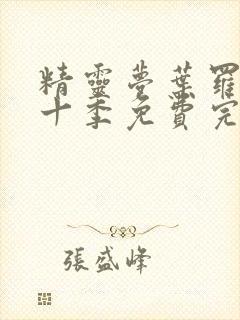 精靈夢葉羅
十季免費完
張盛峰